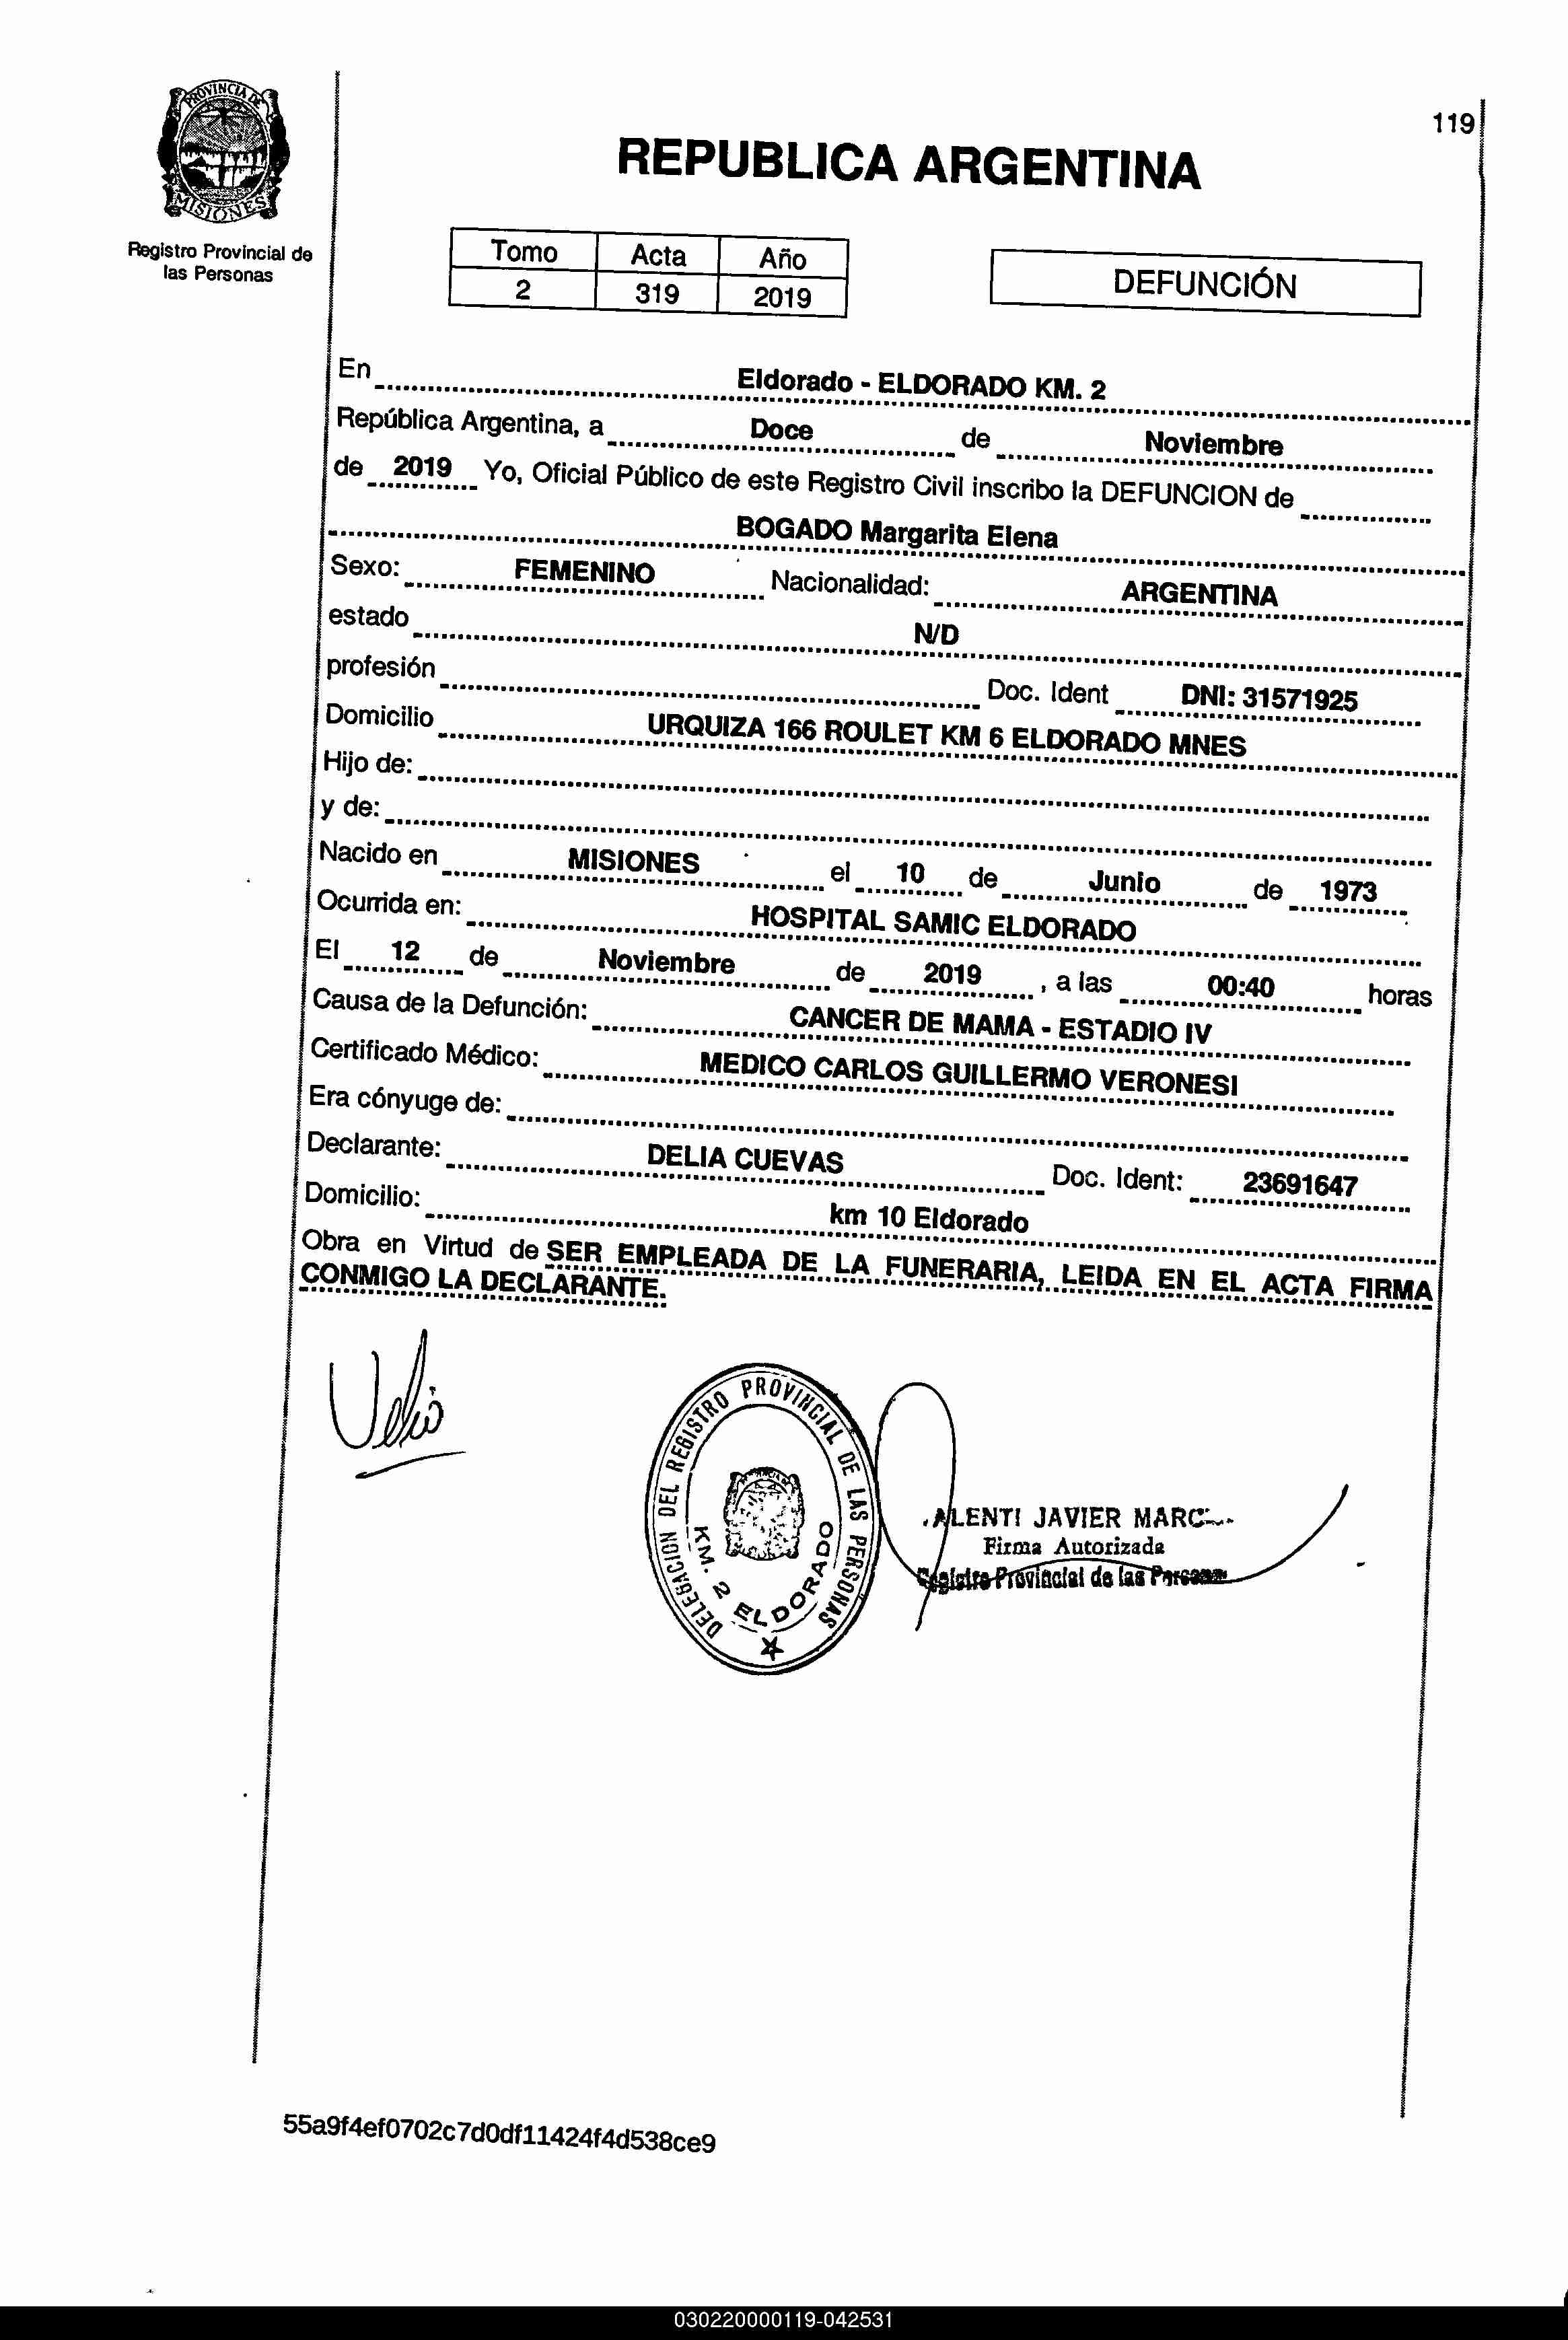 PROVINCIA DE
MISIONES
Registro Provincial de
las Personas
119
REPUBLICA ARGENTINA
Tomo Acta Año
2 319 2019
DEFUNCIÓN
En Eldorado - ELDORADO KM. 2
República Argentina, a Doce de Noviembre
de 2019 Yo, Oficial Público de este Registro Civil inscribo la DEFUNCION de
BOGADO Margarita Elena
Sexo: FEMENINO Nacionalidad: ARGENTINA
estado N/D
profesión Doc. Ident DNI: 31571925
Domicilio URQUIZA 166 ROULET KM 6 ELDORADO MNES
Hijo de:
y de:
Nacido en MISIONES el 10 de Junio de 1973
Ocurrida en: HOSPITAL SAMIC ELDORADO
El 12 de Noviembre de 2019 , a las 00:40 horas
Causa de la Defunción: CANCER DE MAMA - ESTADIO IV
Certificado Médico: MEDICO CARLOS GUILLERMO VERONESI
Era cónyuge de:
Declarante: DELIA CUEVAS Doc. Ident: 23691647
Domicilio: km 10 Eldorado
Obra en Virtud de SER EMPLEADA DE LA FUNERARIA, LEIDA EN EL ACTA FIRMA
CONMIGO LA DECLARANTE.
DELEGACION DEL REGISTRO PROVINCIAL DE LAS PERSONAS
KM. 2 ELDORADO
ALENTI JAVIER MARC
Firma Autorizada
Registro Provincial de las Personas
55a9f4ef0702c7d0df11424f4d538ce9
030220000119-042531